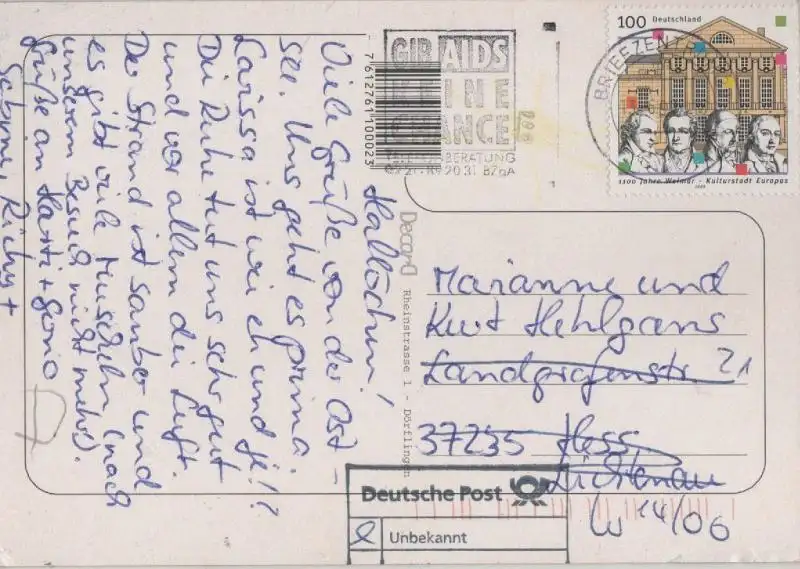 Hallöchen!
Viele Grüße von der Ost-
see. Uns geht es prima.
Larissa ist wie eh und je!!
Die Ruhe tut uns sehr gut
und vor allem die Luft.
Der Strand ist sauber und
es gibt viele Muscheln (nach
unserem Besuch nicht mehr).
Grüße an
Sabine, Richy +
GIB AIDS
KEINE
CHANCE
BERATUNG
BZgA
7612761100023
BRIEFZENTRUM
100 Deutschland
1100 Jahre Weimar - Kulturstadt Europas
1999
Decord
Rheinstrasse 1 - Dörflingen
Marianne und
Kurt Hehlgans
Landgrafenstr 21
37235 Hess
Lichtenau
14/06
Deutsche Post
Unbekannt